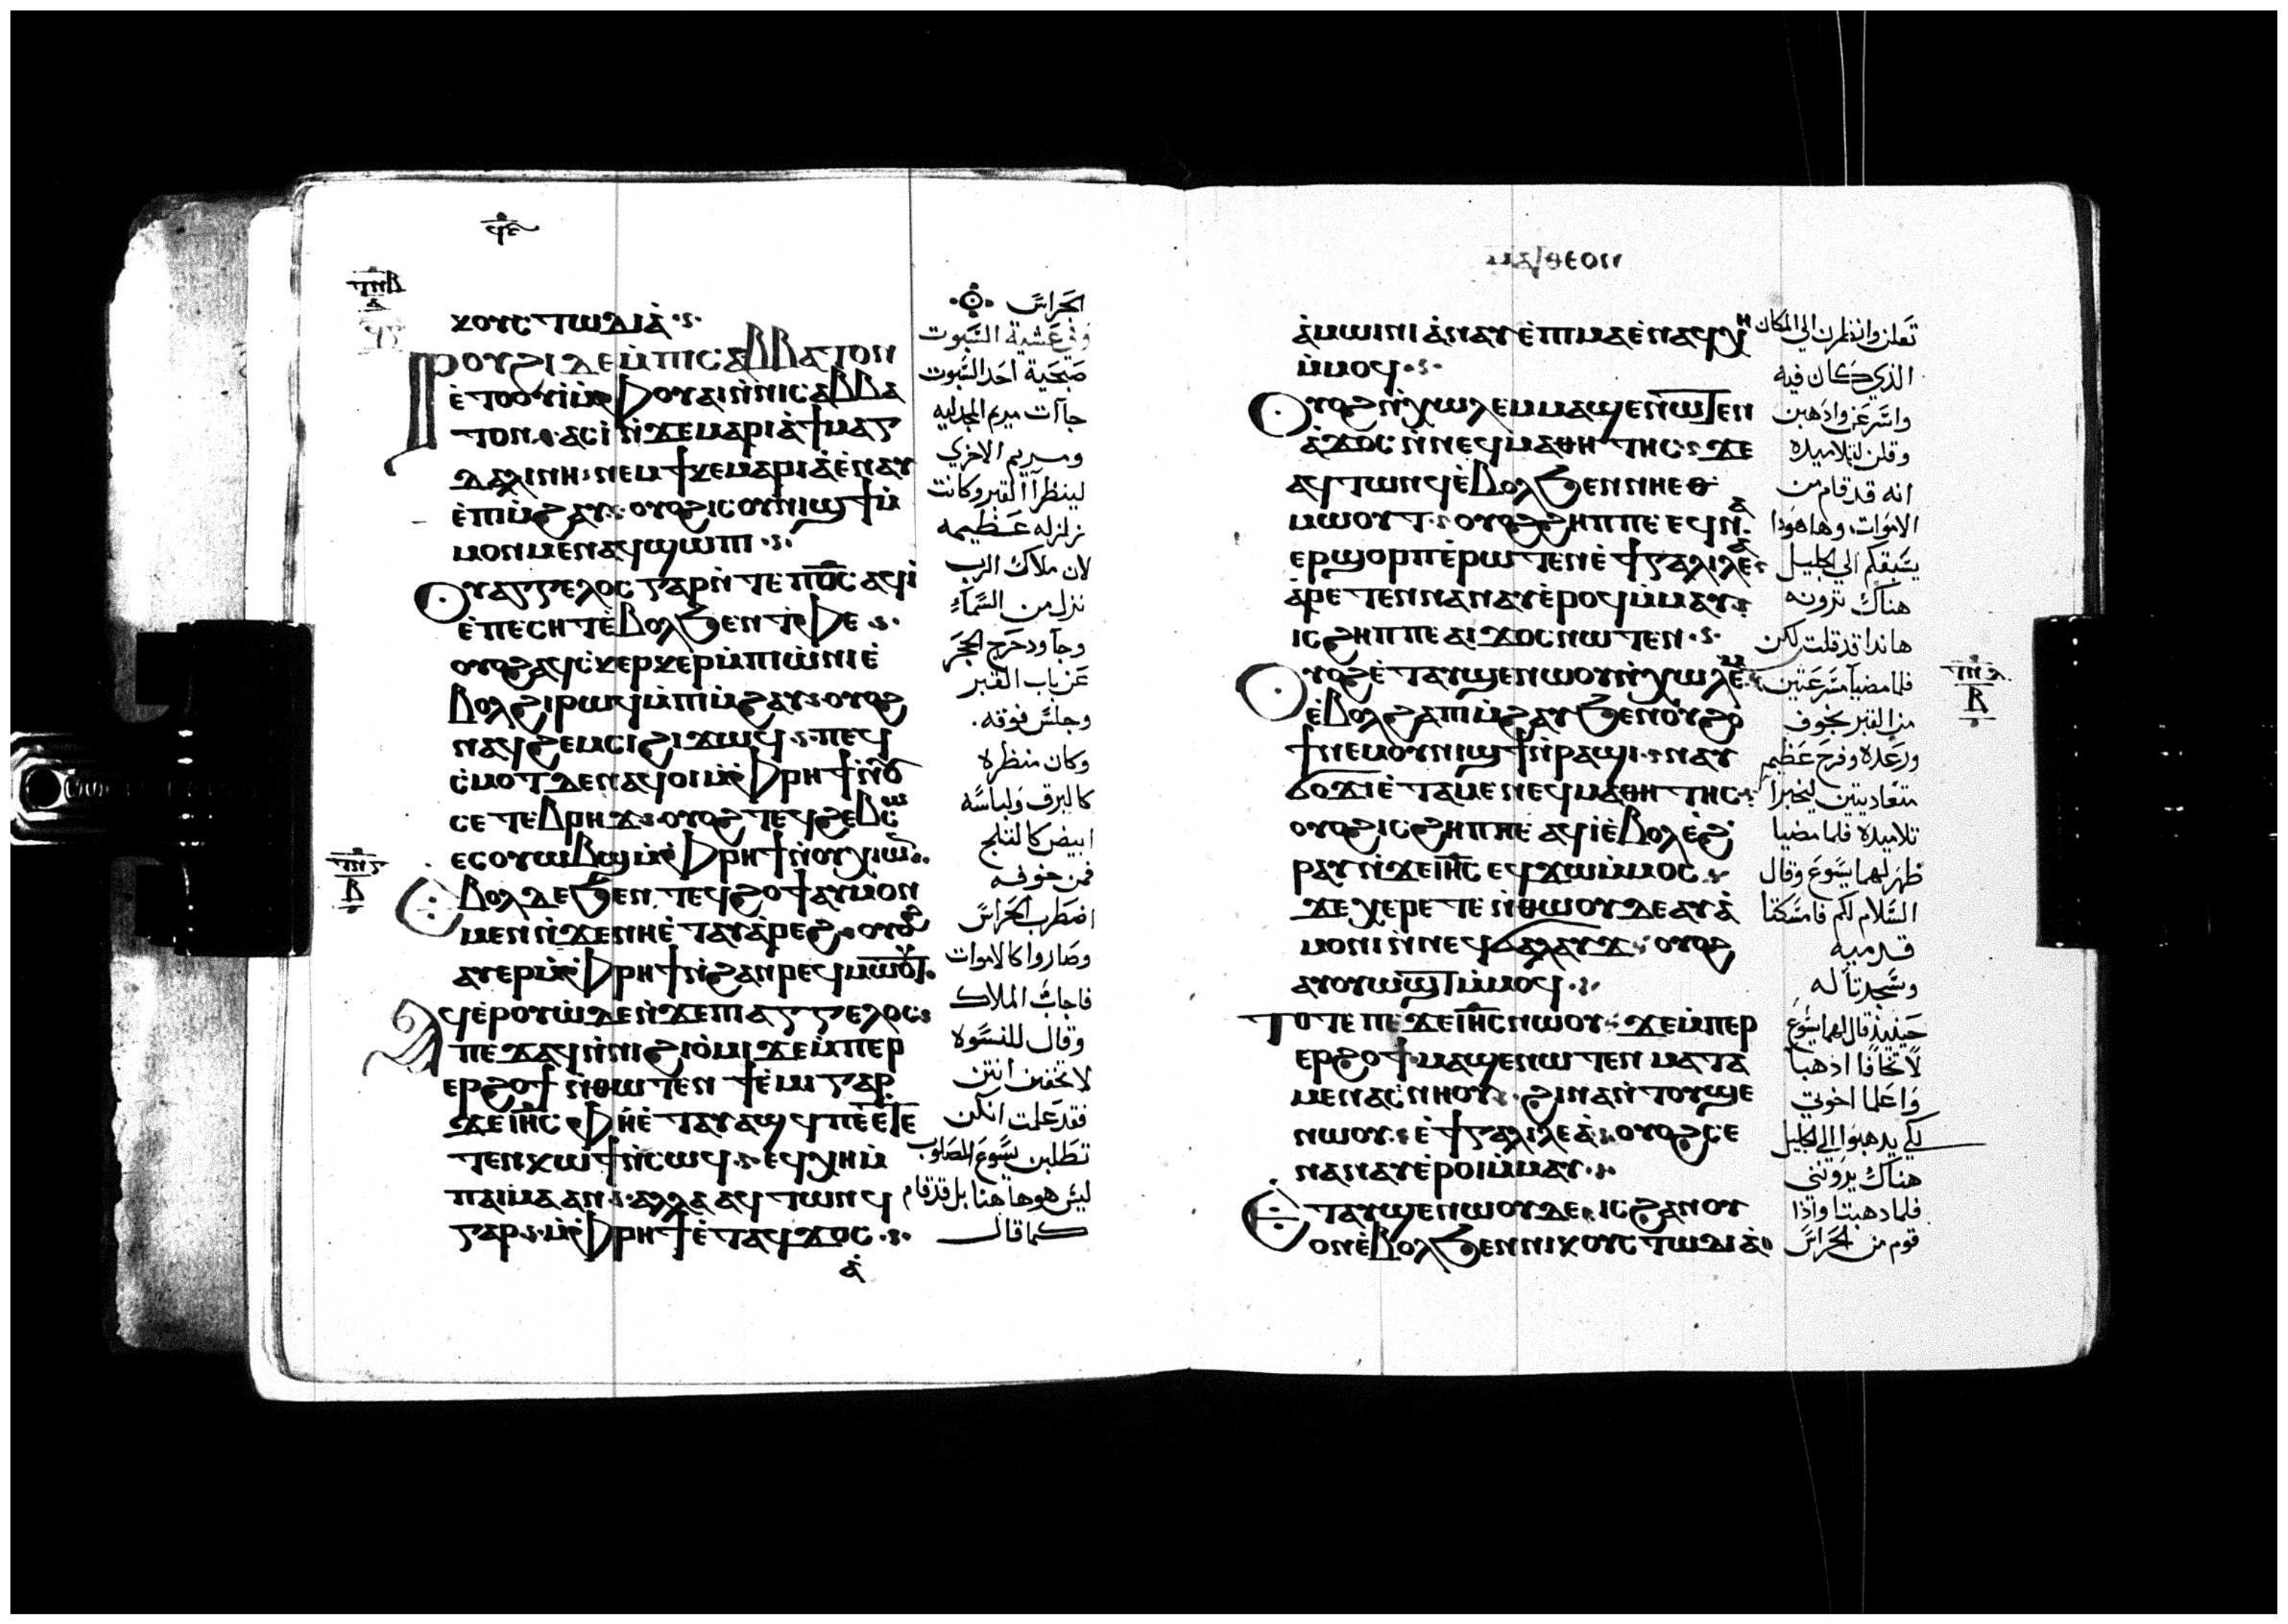 ϥⲉ
ⲧⲛⲃ
ⲁ
ⲭⲟⲩⲥⲧⲱⲇⲓⲁ̀
ⲣⲟⲩϩⲓ ⲇⲉ ⲙ̀ⲡⲓⲥⲁⲃⲃⲁⲧⲟⲛ
ⲉ̀ⲧⲟⲟⲩⲓ̀ ⲙ̀ⲫⲟⲩⲁⲓ ⲛ̀ⲛⲓⲥⲁⲃⲃⲁ
ⲧⲟⲛ ⲁⲥⲓ̀ ⲛ̀ϫⲉ ⲙⲁⲣⲓⲁ̀ ϯⲙⲁⲅ
ⲇⲁⲗⲓⲛⲏ ⲛⲉⲙ ϯⲕⲉⲙⲁⲣⲓⲁ̀ ⲉ̀ⲛⲁⲩ
ⲉ̀ⲡⲓⲙ̀ϩⲁⲩ ⲟⲩⲟϩ ⲓⲥ ⲟⲩⲛⲓϣϯ ⲙ̀
ⲙⲟⲛⲙⲉⲛ ⲁϥϣⲱⲡⲓ
ⲟⲩⲁⲅⲅⲉⲗⲟⲥ ⲅⲁⲣ ⲛ̀ⲧⲉ ⲡⲟ̅ⲥ̅ ⲁϥⲓ̀
ⲉ̀ⲡⲉⲥⲏⲧ ⲉ̀ⲃⲟⲗϧⲉⲛ ⲧ̀ⲫⲉ
ⲟⲩⲟϩ ⲁϥⲥ̀ⲕⲉⲣⲕⲉⲣ ⲙ̀ⲡⲓⲱ̀ⲛⲓ ⲉ̀
ⲃⲟⲗ ϩⲓⲣⲱϥ ⲙ̀ⲡⲓⲙ̀ϩⲁⲩ ⲟⲩⲟϩ
ⲛⲁϥϩⲉⲙⲥⲓ ϩⲓϫⲱϥ ⲡⲉϥ
ⲥ̀ⲙⲟⲧ ⲇⲉ ⲛⲁϥⲟⲓ ⲙ̀ⲫⲣⲏϯ ⲛ̀ⲟⲩ
ⲥⲉⲧⲉⲃⲣⲏϫ ⲟⲩⲟϩ ⲧⲉϥϩⲉⲃⲥⲱ
ⲉⲥⲟⲩⲱⲃϣ ⲙ̀ⲫⲣⲏϯ ⲛ̀ⲟⲩⲭⲓⲱⲛ
ⲉ̀ⲃⲟⲗ ⲇⲉ ϧⲉⲛ ⲧⲉϥϩⲟϯ ⲁⲩⲙⲟⲛ
ⲙⲉⲛ ⲛ̀ϫⲉ ⲛⲏ ⲉ̀ⲧⲁⲩⲁ̀ⲣⲉϩ ⲟⲩⲟϩ
ⲁⲩⲉⲣ ⲙ̀ⲫⲣⲏϯ ⲛ̀ϩⲁⲛⲣⲉϥⲙⲱⲟⲩⲧ
ⲁϥⲉ̀ⲣⲟⲩⲱ̀ ⲇⲉ ⲛ̀ϫⲉ ⲡⲓⲁⲅⲅⲉⲗⲟⲥ
ⲡⲉϫⲁϥ ⲛ̀ⲛⲓϩⲓⲟ̀ⲙⲓ ϫⲉ ⲙ̀ⲡⲉⲣ
ⲉⲣϩⲟϯ ⲛ̀ⲑⲱⲧⲉⲛ ϯⲉ̀ⲙⲓ ⲅⲁⲣ
ϫⲉ ⲓⲏ̅ⲥ̅ ⲫⲏ ⲉ̀ⲧⲁⲩⲁϣϥ ⲡⲉ ⲉⲧⲉ
ⲧⲉⲛⲕⲱϯ ⲛ̀ⲥⲱϥ ⲉϥⲭⲏ ⲙ̀
ⲡⲁⲓⲙⲁ ⲁⲛ ⲁⲗⲗⲁ ⲁϥⲧⲱⲛϥ
ⲅⲁⲣ ⲙ̀ⲫⲣⲏϯ ⲉ̀ⲧⲁϥϫⲟⲥ
ⲁ̀
الحراس
وفي عشية السبوت
صبحية احد السبوت
جاات مريم المجدليه
ومريم الاخري
لينظرا القبر وكانت
زلزله عظيمه
لان ملاك الرب
نزل من السماء
وجا ودحرج الحجر
عن باب القبر
وجلس فوقه
وكان منظره
كالبرق ولباسه
ابيض كالثلج
فمن خوفه
اضطرب الحراس
وصاروا كالاموات
فاجاب الملاك
وقال للنسوه
لا تخفين انتن
فقد علمت انكن
تطلبن يسوع المصلوب
ليس هوهاهنا بل قد قام
كما قال
ⲙⲁⲧⲑⲉⲟⲛ
ⲁ̀ⲙⲱⲓⲛⲓ ⲁ̀ⲛⲁⲩ ⲉ̀ⲡⲓⲙⲁ ⲉ̀ⲛⲁϥⲭⲏ
ⲙ̀ⲙⲟϥ
ⲟⲩⲟϩ ⲛ̀ⲭⲱⲗⲉⲙ ⲙⲁϣⲉⲛⲱⲧⲉⲛ
ⲁ̀ϫⲟⲥ ⲛ̀ⲛⲉϥⲙⲁⲑⲏⲧⲏⲥ ϫⲉ
ⲁϥⲧⲱⲛϥ ⲉ̀ⲃⲟⲗϧⲉⲛ ⲛⲏⲉⲑ
ⲙⲱⲟⲩⲧ ⲟⲩⲟϩ ϩⲏⲡⲡⲉ ϥⲛⲁ
ⲉⲣϣⲟⲣⲡ ⲉ̀ⲣⲱⲧⲉⲛ ⲉ̀ϯⲅⲁⲗⲓⲗⲉⲁ̀
ⲁ̀ⲣⲉⲧⲉⲛⲛⲁⲛⲁⲩ ⲉ̀ⲣⲟϥ ⲙ̀ⲙⲁⲩ
ⲓⲥϩⲏⲡⲡⲉ ⲁⲓϫⲟⲥ ⲛⲱⲧⲉⲛ
ⲟⲩⲟϩ ⲉ̀ⲧⲁⲩϣⲉⲛⲱⲟⲩ ⲛ̀ⲭⲱⲗⲉⲙ
ⲉ̀ⲃⲟⲗϩⲁ ⲡⲓⲙ̀ϩⲁⲩ ϧⲉⲛ ⲟⲩϩⲟ
ϯ ⲛⲉⲙ ⲟⲩⲛⲓϣϯ ⲛ̀ⲣⲁϣⲓ ⲛⲁⲩ
ϭⲟϫⲓ ⲉ̀ⲧⲁⲙⲉ ⲛⲉϥⲙⲁⲑⲏⲧⲏⲥ
ⲟⲩⲟϩ ⲓⲥϩⲏⲡⲡⲉ ⲁϥⲓ̀ ⲉ̀ⲃⲟⲗ ⲉ̀ϩ
ⲣⲁⲩ ⲛ̀ϫⲉ ⲓⲏ̅ⲥ̅ ⲉϥϫⲱ ⲙ̀ⲙⲟⲥ
ϫⲉ ⲭⲉⲣⲉⲧⲉ ⲛ̀ⲑⲱⲟⲩ ⲇⲉ ⲁⲩⲁ̀
ⲙⲟⲛⲓ ⲛ̀ⲛⲉϥϭⲁⲗⲁⲩϫ ⲟⲩⲟϩ
ⲁⲩⲟⲩⲱϣⲧ ⲙ̀ⲙⲟϥ
ⲧⲟⲧⲉ ⲡⲉϫⲉ ⲓⲏ̅ⲥ̅ ⲛⲱⲟⲩ ϫⲉ ⲙ̀ⲡⲉⲣ
ⲉⲣϩⲟϯ ⲙⲁϣⲉⲛⲱⲧⲉⲛ ⲙⲁⲧⲁ
ⲙⲉ ⲛⲁⲥ̀ⲛⲏⲟⲩ ϩⲓⲛⲁ ⲛ̀ⲧⲟⲩϣⲉ
ⲛⲱⲟⲩ ⲉ̀ϯⲅⲁⲗⲓⲗⲉⲁ̀ ⲟⲩⲟϩ ⲥⲉ
ⲛⲁⲛⲁⲩ ⲉ̀ⲣⲟⲓ ⲙ̀ⲙⲁⲩ
ⲉ̀ⲧⲁⲩϣⲉⲛⲱⲟⲩ ⲇⲉ ⲓⲥ ϩⲁⲛⲟⲩ
ⲟⲛ ⲉ̀ⲃⲟⲗϧⲉⲛ ⲛⲓⲕⲟⲩⲥⲧⲱⲇⲓⲁ̀
تعلن وانظرن الي المكان
الذي كان فيه
واسرعن واذهبن
وقلن لتلاميده
انه قد قام من
الاموات وها هوذا
يسبقكم الي الجليل
هناك ترونه
هاندا قد قلت لكن
فلما مضيا مسرعتين
من القبر بخوف
ورعده وفرح عظيم
متعاديتين ليخبرا
تلاميده فلما مضيا
ظهر لهما يسوع وقال
السلام لكم فامسكتا
قدميه
وسجدتا له
حينيذ قال لهما يسوع
لا تخافا اذهبا
واعلما اخوتي
لكي يدهبوا الي الجليل
هناك يرونني
فلما دهبتا واذا
قوم من الحراس